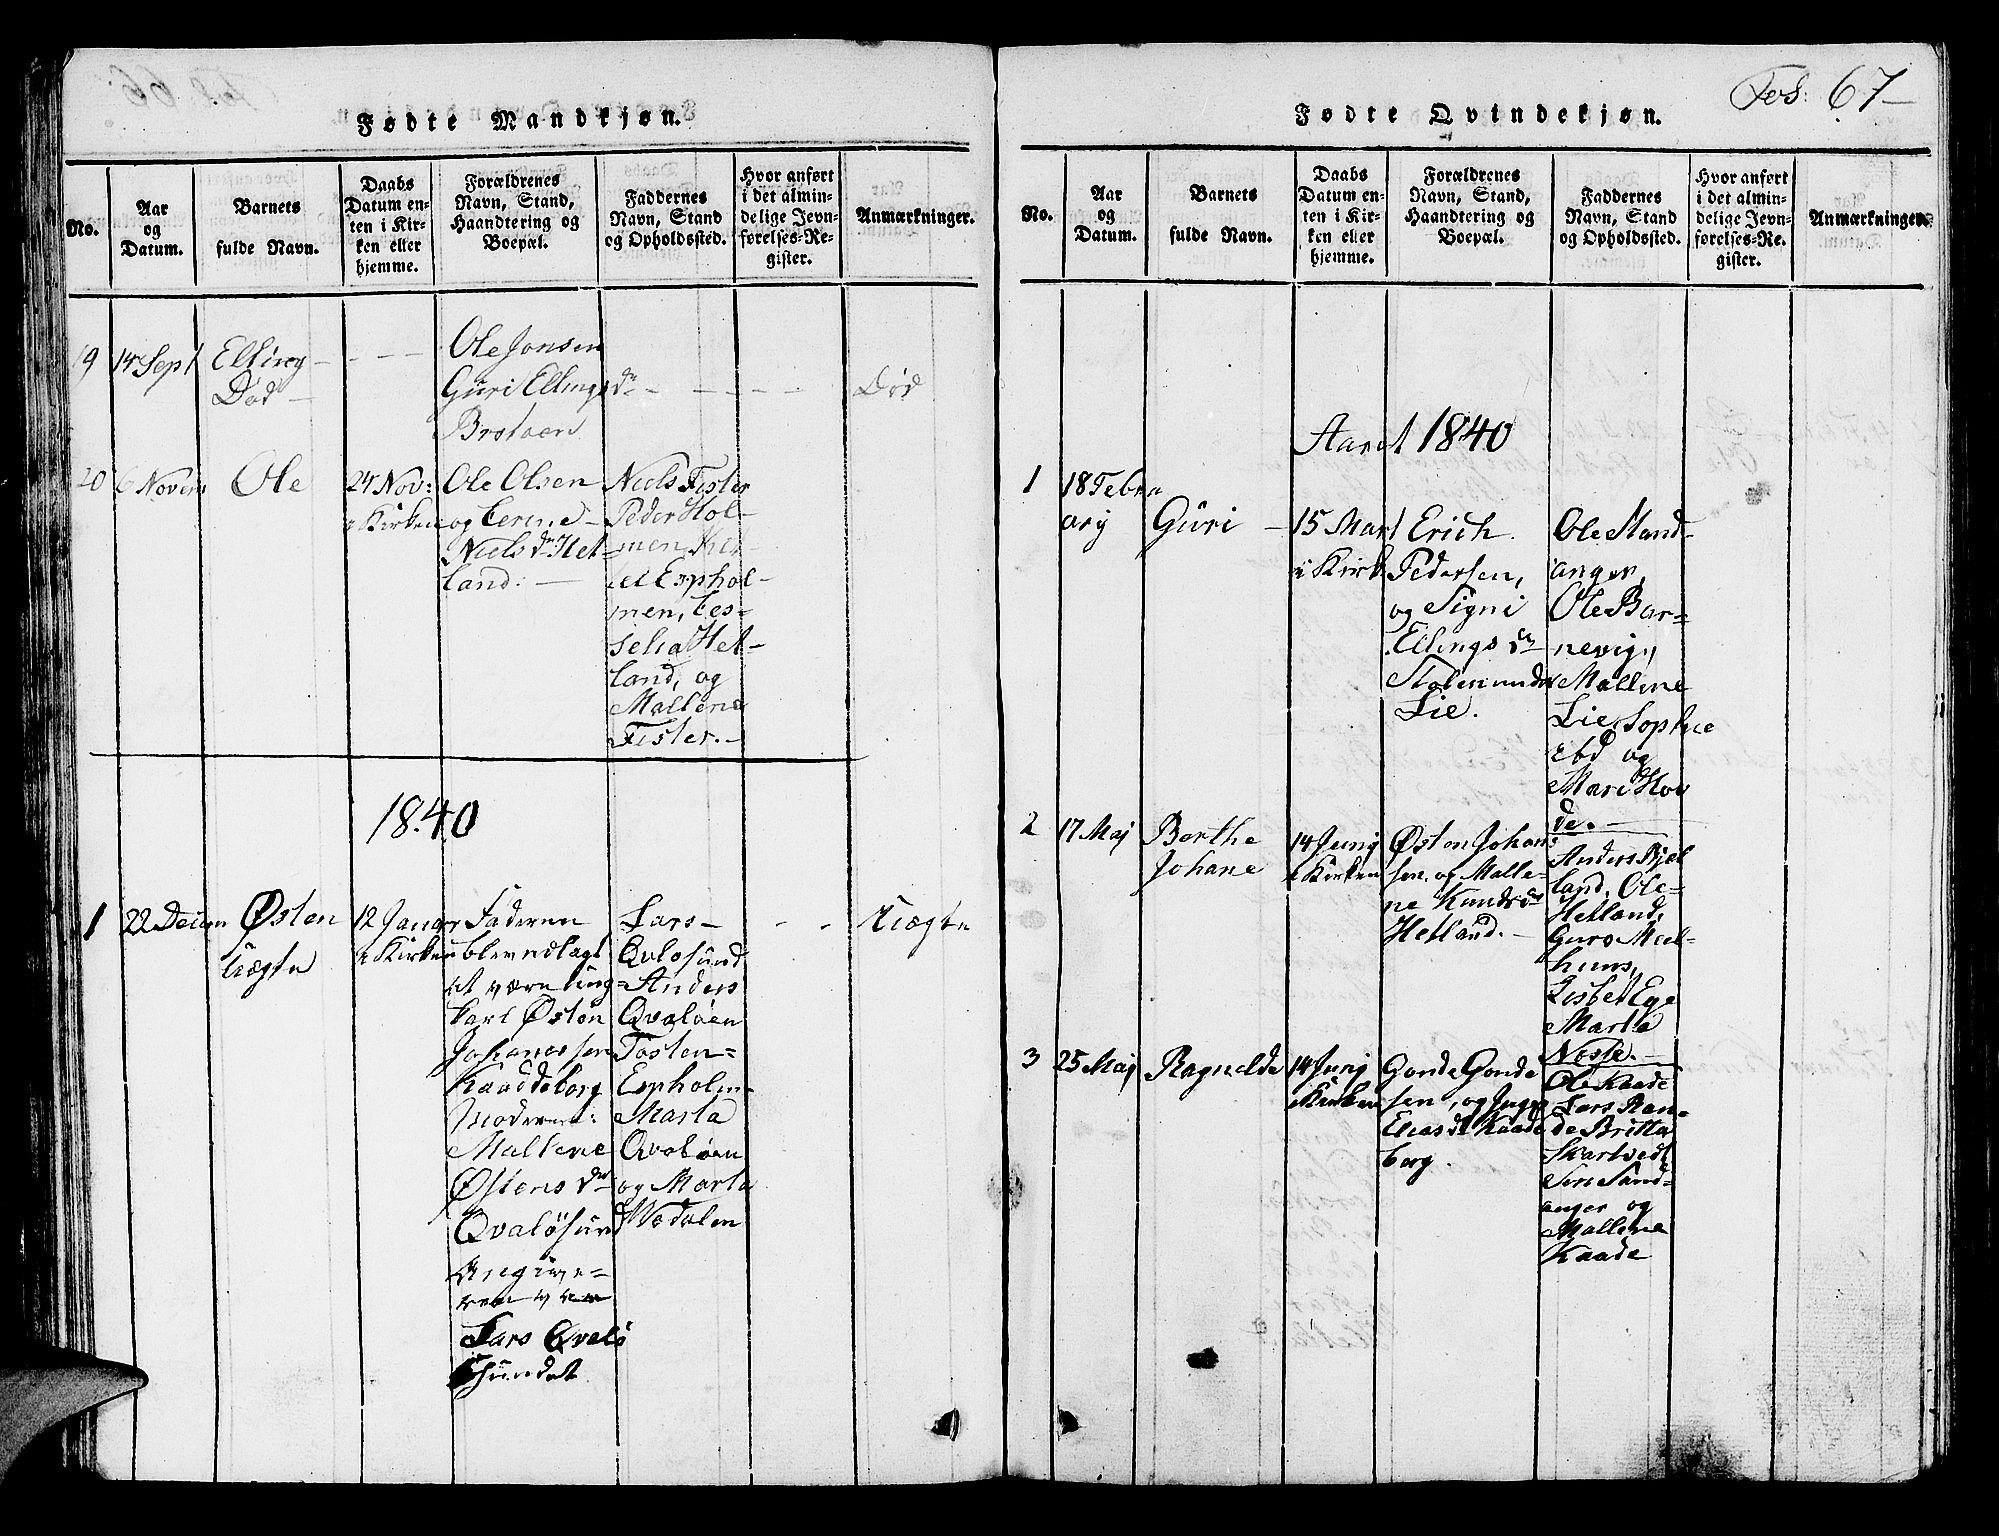 Fødte Mandkjøn.
No.
Aar
og
Datum.
Barnets
fulde Navn.
Daabs
Datum en-
ten i Kir-
ken eller
hjemme.
Forældrenes
Navn, Stand,
Haandtering og
Boepæl.
Faddernes
Navn, Stand
og Opholdssted.
Hvor anført
i det almin-
delige Jevn-
førelses-Re-
gister.
Anmærkninger.
19
14 Sept
Elling
Død
Ole Jonsen
Guri Ellings dr
Død
20
6 Novem
Ole
24 Nov:
i Kirken
Ole Olsen
og
Niels dr Het-
land:
Niels Fister
Peder Hol-
men,
Esphol-
men,
Het-
land, og
Mallene
Fister.
1840
1
22 Decem
Østen
Uægte
12 Janur
i Kirken
Faderen
blev udlagt
at være ung-
karl Østen
Johannessen
Kaaddeborg
Moderen:
Mallene
Østens dr
Qvaløsund
Angive-
ren var
Lars Qvalø
Sundet
Lars
Qvaløsund
Anders
Qvaløen
Tosten
Espholm
Marta
Qvaløen
og Marta
Wodalen
Uægte
Fol: 67
Fødte Qvindekjøn.
No.
Aar
og
Datum.
Barnets
fulde Navn.
Daabs
Datum en-
ten i Kir-
ken eller
hjemme.
Forældrenes
Navn, Stand,
Haandtering og
Boepæl.
Faddernes
Navn, Stand
og Opholdssted.
Hvor anført
i det almin-
delige Jevn-
førelses-Re-
gister.
Anmærkninger.
Aaret 1840
1
18 Febru
ary
Guri
15 Mart
i Kirk
Erich
Pedersen,
og Signi
Ellings dr
Lie.
Ole Sand-
anger,
Ole Bar-
nevig,
Mallene
Lie, Sophie
ibd og
Mari Hov
de.
2
17 Maj
Berthe
Johane
14 Junj
i Kirken
Østen Johan-
sen og Malle-
ne Knuds dr
Hetland.
Anders Kjel
land, Ole
Hetland,
Guro Mæl-
huus,
Lisbet Ege
Marta
Nøste.
3
25 Maj
Ragnelde
14 Junj
i Kirken
Gonde Gonde
sen, og Inger
Elias dr Kaade
borg.
Ole Kaade
Lars Ran-
de Britta
Skartvedt
Siri Sand-
anger og
Mallene
Kaade